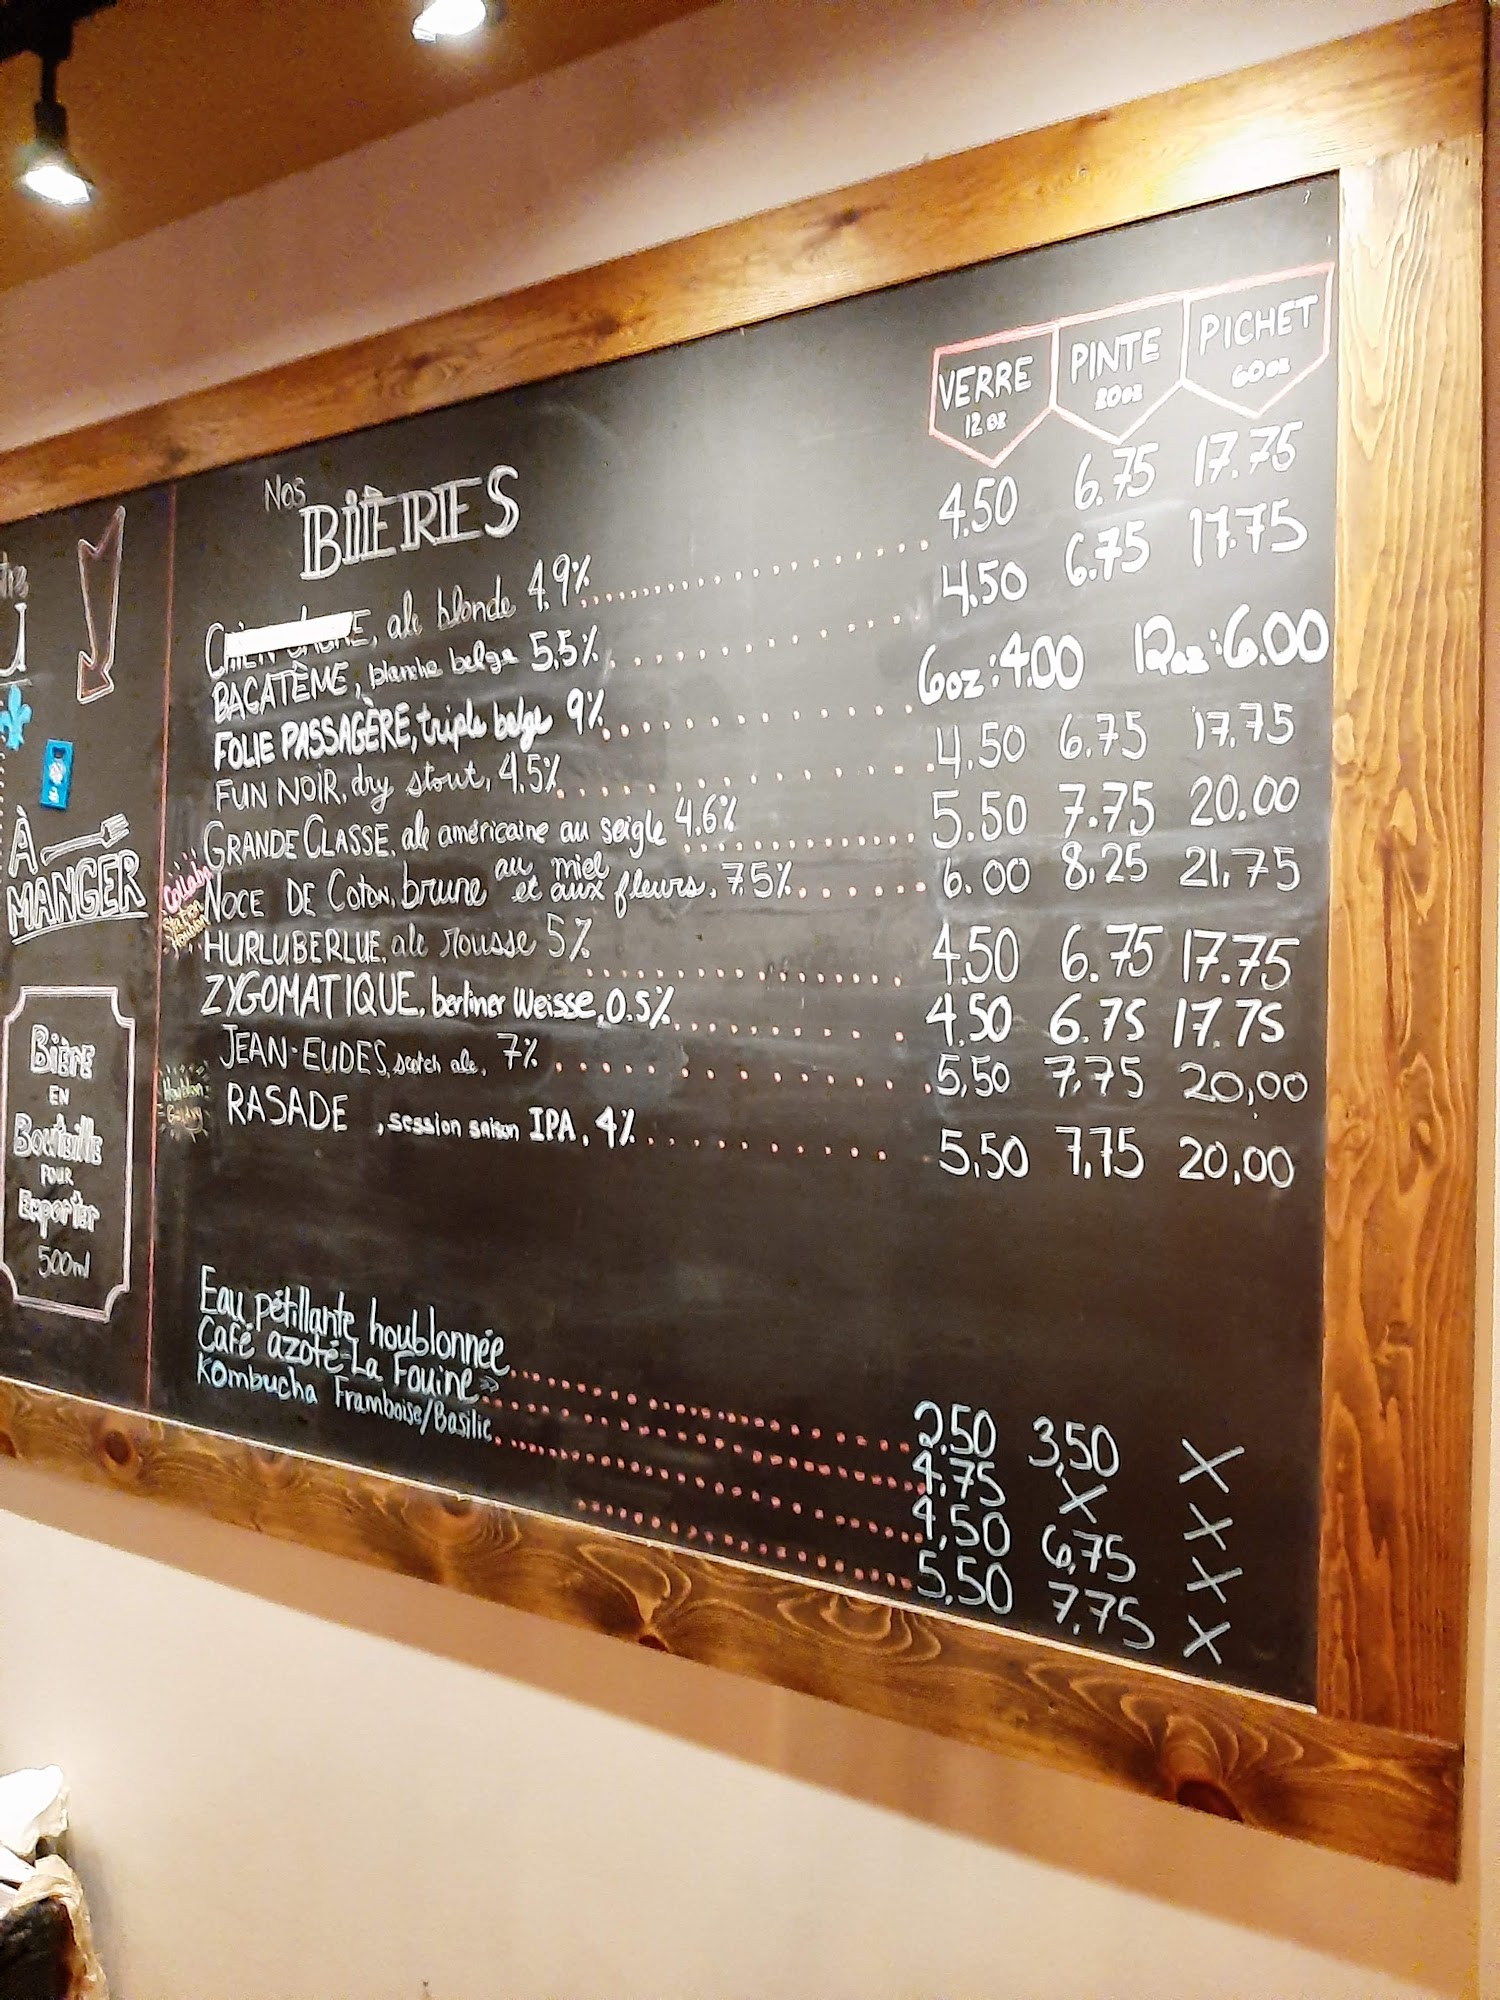 Nos
BIÈRES
VERRE PINTE PICHET
12 oz 20oz 60oz
ale blonde 4.9% 4.50 6.75 17.75
BAGATÈME, blanche belge 5.5% 4.50 6.75 17.75
FOLIE PASSAGÈRE, triple belge 9% 6oz:4.00 12oz:6.00
FUN NOIR, dry stout, 4.5% 4.50 6.75 17.75
GRANDE CLASSE, ale américaine au seigle 4.6% 5.50 7.75 20.00
NOCE DE COTON, brune au miel et aux fleurs, 7.5% 6.00 8.25 21.75
HURLUBERLUE, ale rousse 5% 4.50 6.75 17.75
ZYGOMATIQUE, berliner Weisse, 0.5% 4.50 6.75 17.75
JEAN-EUDES, scotch ale, 7% 5,50 7,75 20,00
RASADE, session saison IPA, 4% 5,50 7,75 20,00
Eau pétillante houblonnée 2.50 3,50 X
Café azoté La Fouine» 4.75 X X
Kombucha Framboise/Basilic 4,50 6,75 X
5,50 7,75 X
Collab
Houblon
À
MANGER
Bière
EN
Bouteille
POUR
Exporter
500ml